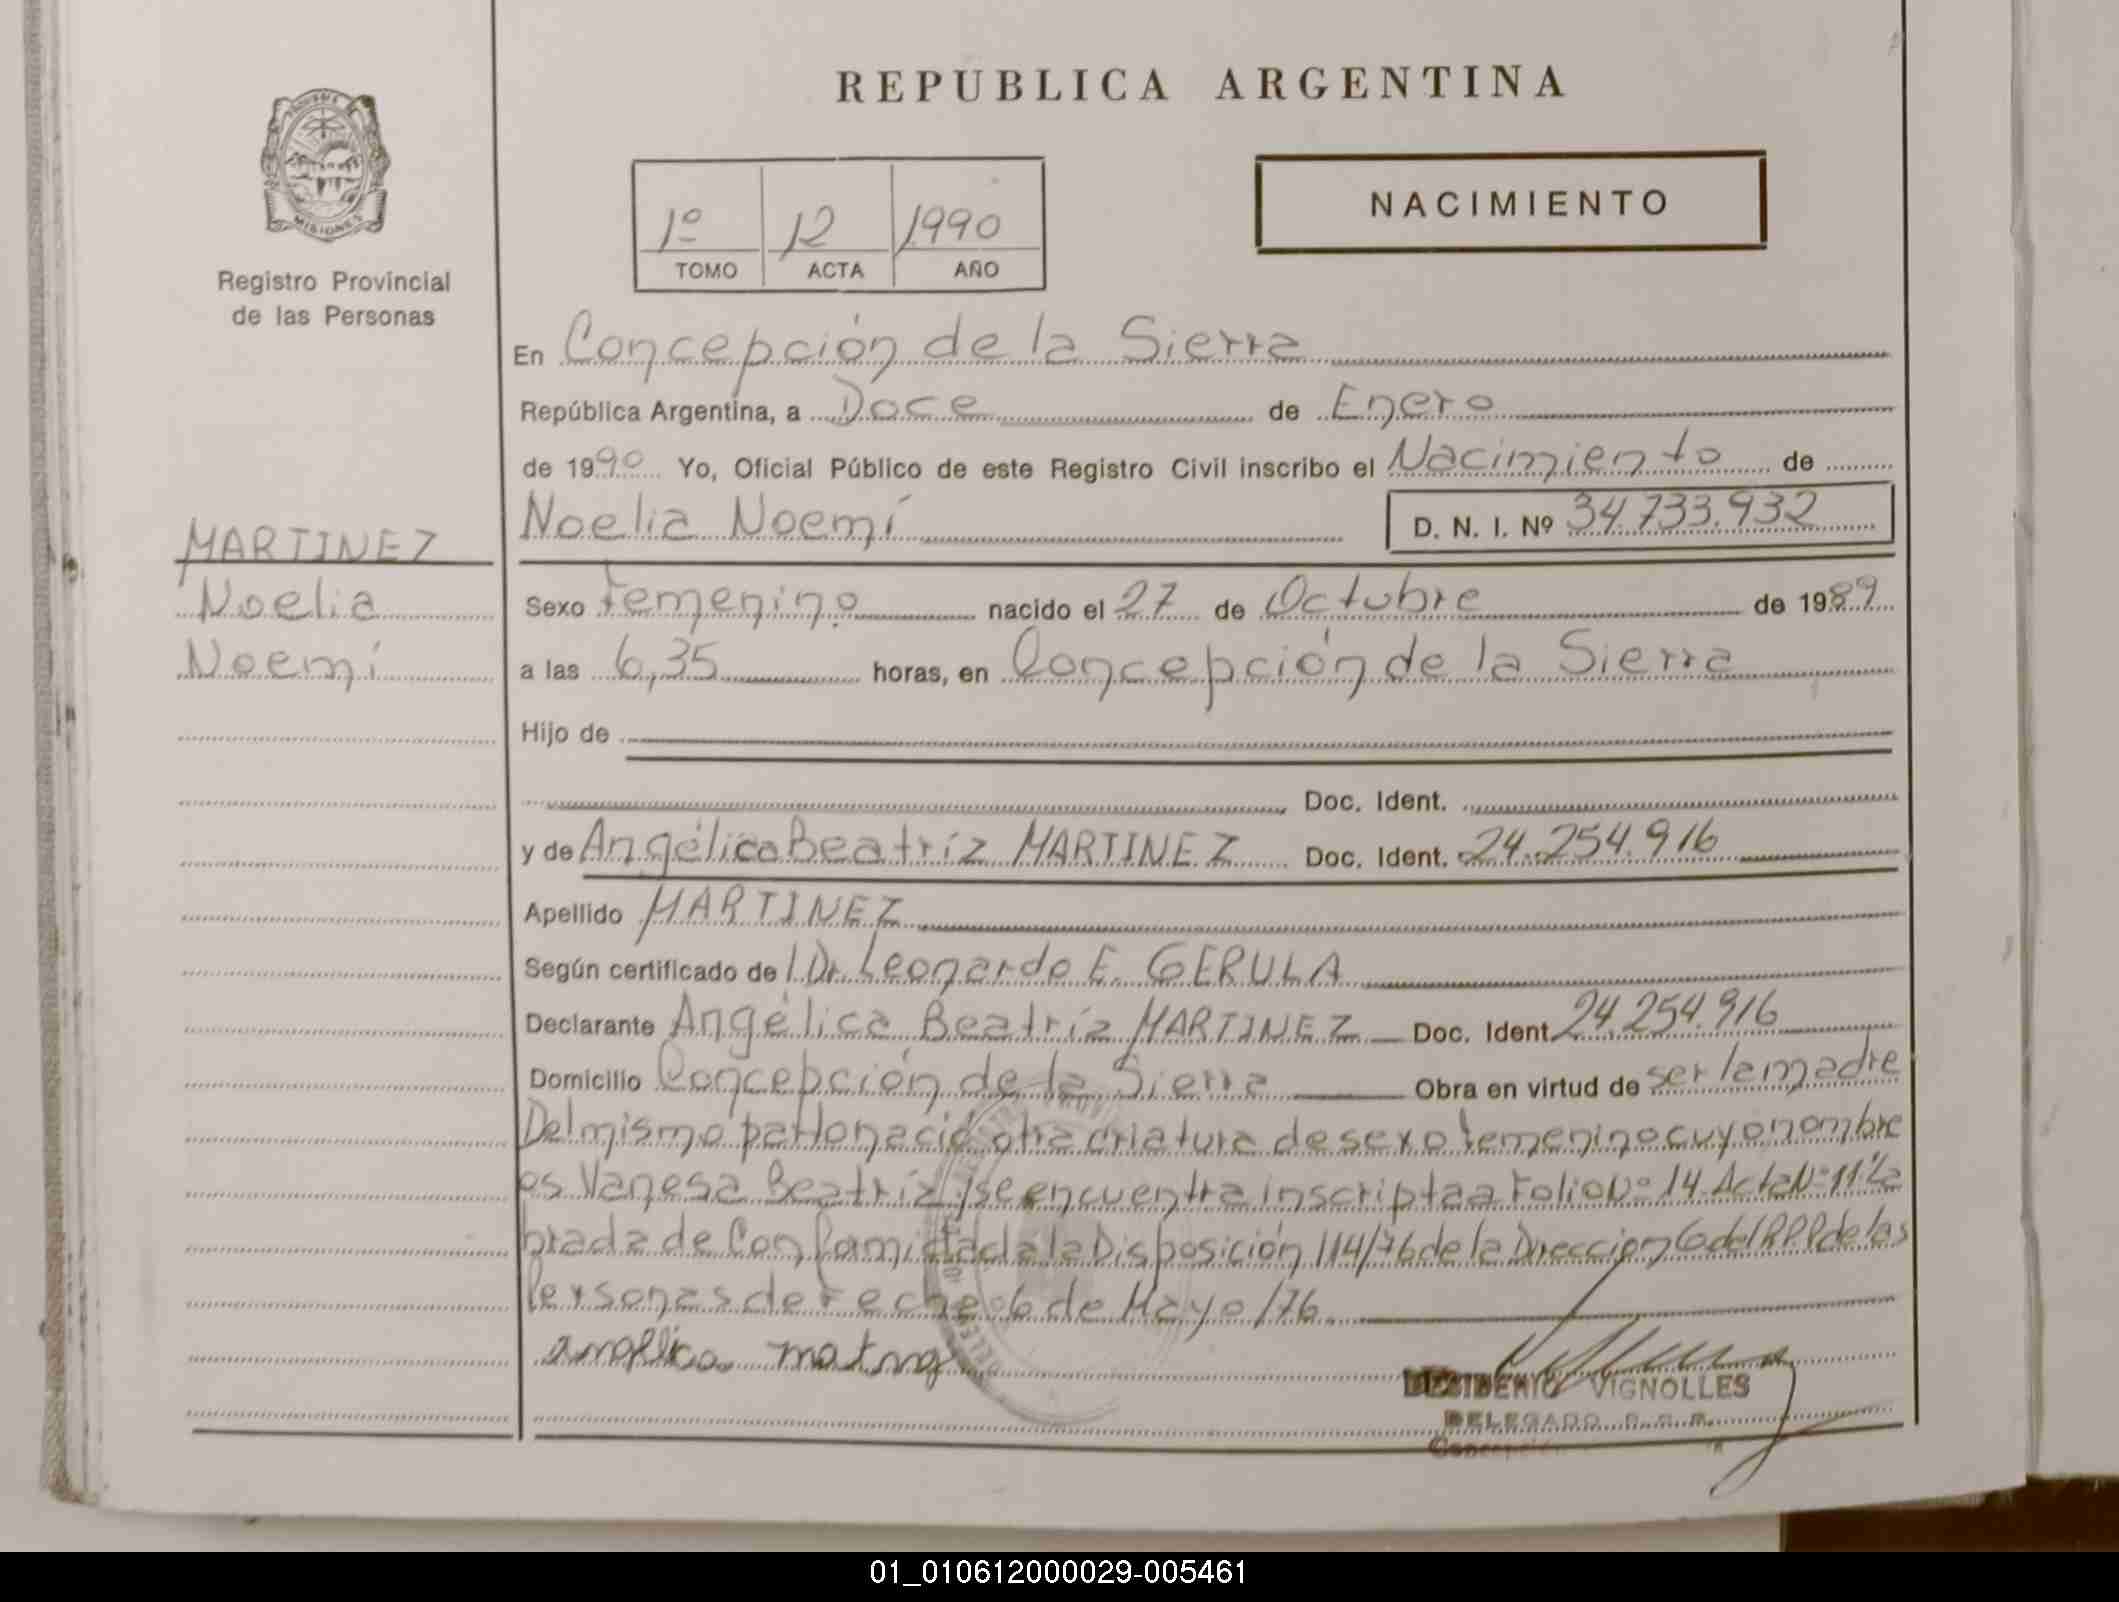 REPUBLICA ARGENTINA
MISIONES
Registro Provincial
de las Personas
1º 12 1990
TOMO ACTA AÑO
NACIMIENTO
En Concepción de la Sierra
República Argentina, a Doce de Enero
de 1990 Yo, Oficial Público de este Registro Civil inscribo el Nacimiento de
Noelia Noemí D. N. I. Nº 34.733.932
MARTINEZ
Noelia
Noemí
Sexo Femenino nacido el 27 de Octubre de 1989
a las 6,35 horas, en Concepción de la Sierra
Hijo de
Doc. Ident.
y de Angélica Beatríz MARTINEZ Doc. Ident. 24.254.916
Apellido MARTINEZ
Según certificado de l Dr. Leonardo E. GERULA
Declarante Angélica Beatríz MARTINEZ Doc. Ident. 24.254.916
Domicilio Concepción de la Sierra Obra en virtud de ser la madre
Del mismo parto nació otra criatura de sexo femenino cuyo nombre
es Vanesa Beatríz y se encuentra inscripta a Folio Nº 14 Acta Nº 11 "La
brada de Conformidad a la Disposición 114/76 de la Direccion G del R.P.P de las
Personas de fecha 6 de Mayo/76.
DESIDERIO VIGNOLLES
DELEGADO
01_010612000029-005461